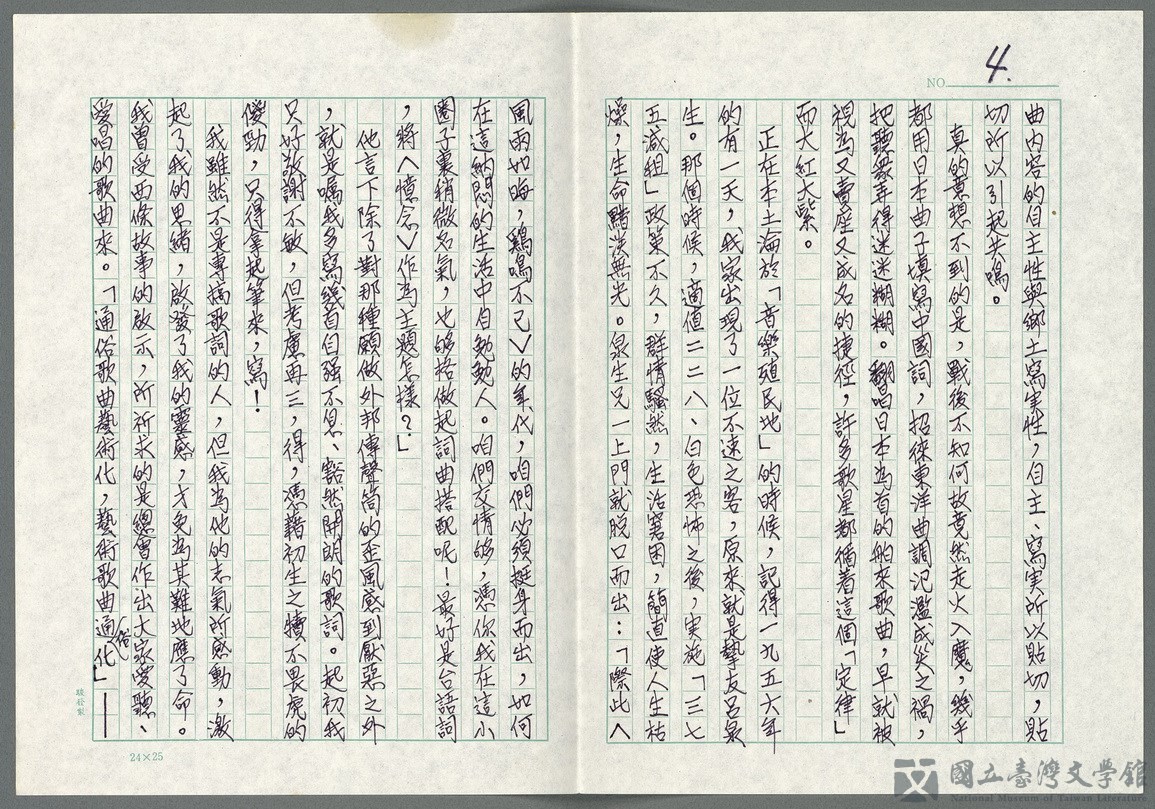 NO. 4.
曲內容的自主性與鄉土寫实性，自主、寫実所以貼切，貼
切所以引起共鳴。
真的意想不到的是，戰後不知何故竟然走火入魔，幾乎
都用日本曲子填寫中國詞，招徠東洋曲調氾濫成災之禍，
把聽眾弄得迷迷糊糊。翻唱日本為首的舶來歌曲，早就被
視為又賣座又成名的捷徑，許多歌星都循着這個「定律」
而大紅大紫。
正在本土淪於「音樂殖民地」的時候，記得一九五六年
的有一天，我家出現了一位不速之客，原來就是摯友呂泉
生。那個時候，適值二二八、白色恐怖之後，実施「三七
五減租」政策不久，群情騷然，生活窘困，簡直使人生枯
燥，生命黯淡無光。泉生兄一上門就脫口而出：「際此〈
風雨如晦，鷄鳴不已〉的年代，咱們必須挺身而出，如何
在這納悶的生活中自勉勉人。咱們交情够，憑你我在這小
圈子裏稍微名氣，也够格做起詞曲搭配呢！最好是台語詞
，將〈憶念〉作為主題怎樣？」
他言下除了對那種願做外邦傳聲筒的歪風感到厭惡之外
，就是囑我多寫幾首自强不息、豁然開朗的歌詞。起初我
只好敬謝不敏，但考慮再三，得，憑藉初生之犢不畏虎的
傻勁，只得拿起筆來，寫！
我雖然不是專搞歌詞的人，但我為他的志氣所感動，激
起了我的思緒，啟發了我的靈感，才免為其難地應了命。
我曾受西條故事的啟示，所祈求的是總會作出大家愛聽、
愛唱的歌曲來。「通俗歌曲藝術化，藝術歌曲通俗化」——
24×25
國立臺灣文學館
National Museum of Taiwan Literature